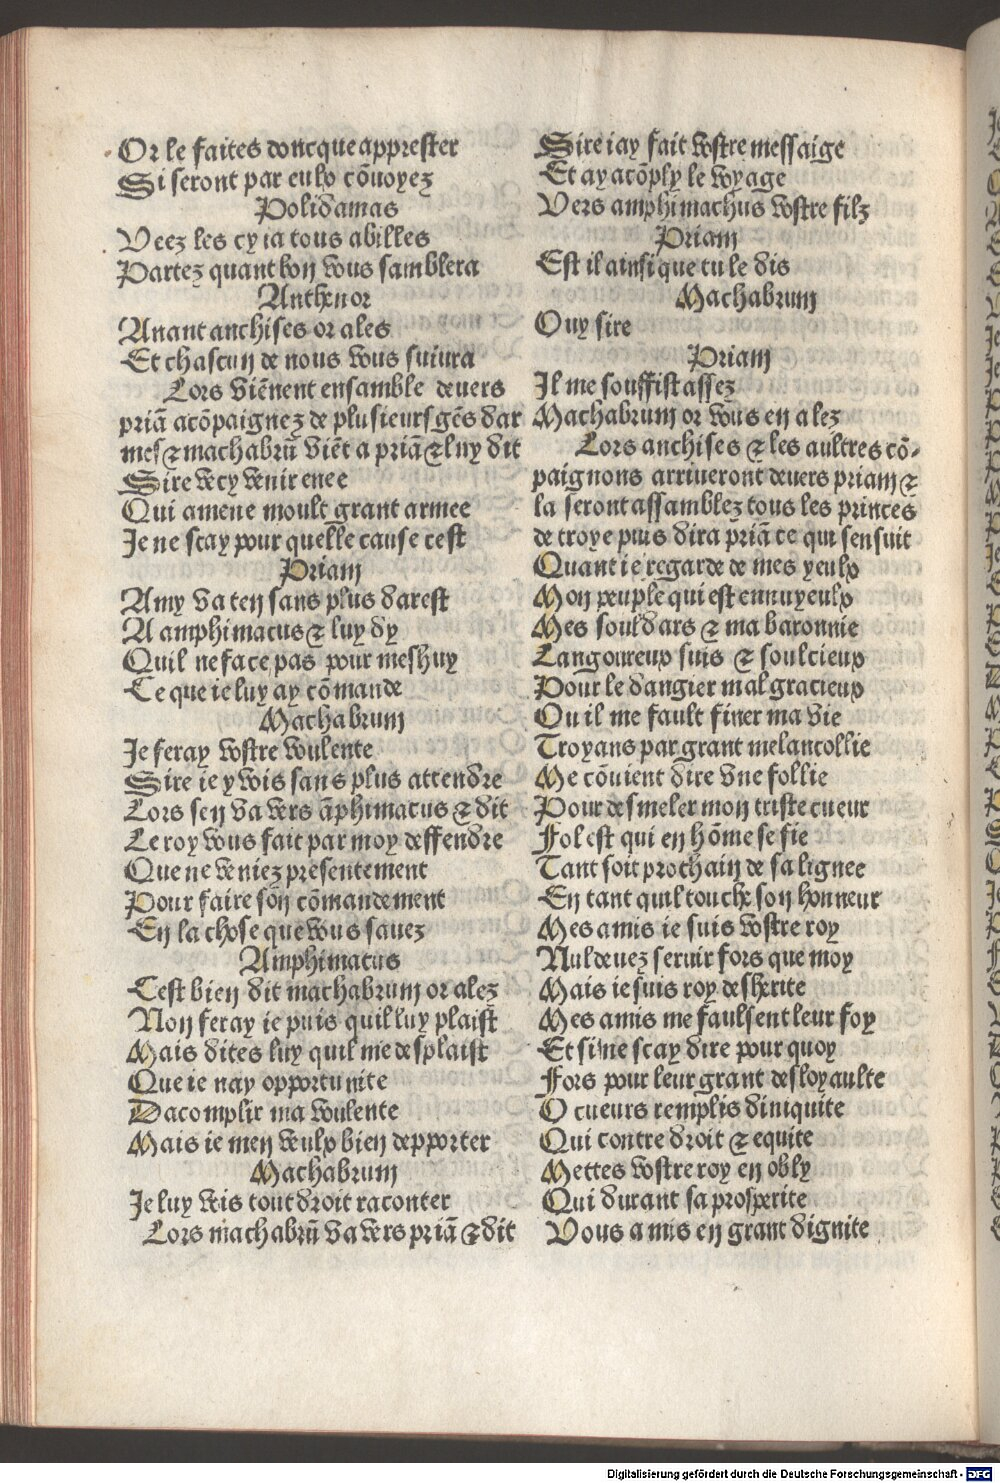 Or le faites doncque apprester
Si seront par eulx cõuoyez
Polidamas
Veez les cy ia tous abilles
Partez quant bon vous samblera
Anthenor
Auant anchises or ales
Et chascun de nous vous suiura
Lors viẽnent ensamble deuers
priã acõpaignez de plusieurs gẽs dar
mes ⁊ machabrũ viẽt a priã ⁊ luy dit
Sire vecy venir enee
Qui amene moult grant armee
Je ne scay pour quelle cause cest
Priam
Amy va ten sans plus darest
A amphimacus ⁊ luy dy
Quil ne face pas pour meshuy
Ce que ie luy ay cõmande
Machabrum
Je feray vostre voulente
Sire ie y vois sans plus attendre
Lors sen va vers ãphimacus ⁊ dit
Le roy vous fait par moy deffendre
Que ne veniez presentement
Pour faire son cõmandement
En la chose que vous sauez
Amphimacus
Cest bien dit machabrum or alez
Non feray ie puis quil luy plaist
Mais dites luy quil me desplaist
Que ie nay opportunite
Dacomplir ma voulente
Mais ie men veulx bien depporter
Machabrum
Je luy vois tout droit raconter
Lors machabrũ va vers priã ⁊ dit
Sire iay fait vostre messaige
Et ay acõply le voyage
Vers amphimachus vostre filz
Priam
Est il ainsi que tu le dis
Machabrum
Ouy sire
Priam
Il me souffist assez
Machabrum or vous en alez
Lors anchises ⁊ les aultres cõ-
paignons arriueront deuers priam ⁊
la seront assamblez tous les princes
de troye puis dira priã ce qui sensuit
Quant ie regarde de mes yeulx
Mon peuple qui est ennuyeulx
Mes souldars ⁊ ma baronnie
Langoureux suis ⁊ soulcieux
Pour le dangier mal gracieux
Ou il me fault finer ma vie
Troyans par grant melancollie
Me cõuient dire vne follie
Pour desmeler mon triste cueur
Fol est qui en hõme se fie
Tant soit prochain de sa lignee
En tant quil touche son honneur
Mes amis ie suis vostre roy
Nul deuez seruir fors que moy
Mais ie suis roy desherite
Mes amis me faulsent leur foy
Et si ne scay dire pour quoy
Fors pour leur grant desloyaulte
O cueurs remplis diniquite
Qui contre droit ⁊ equite
Mettes vostre roy en obly
Qui durant sa prosperite
Vous a mis en grant dignite
Digitalisierung gefördert durch die Deutsche Forschungsgemeinschaft - DFG